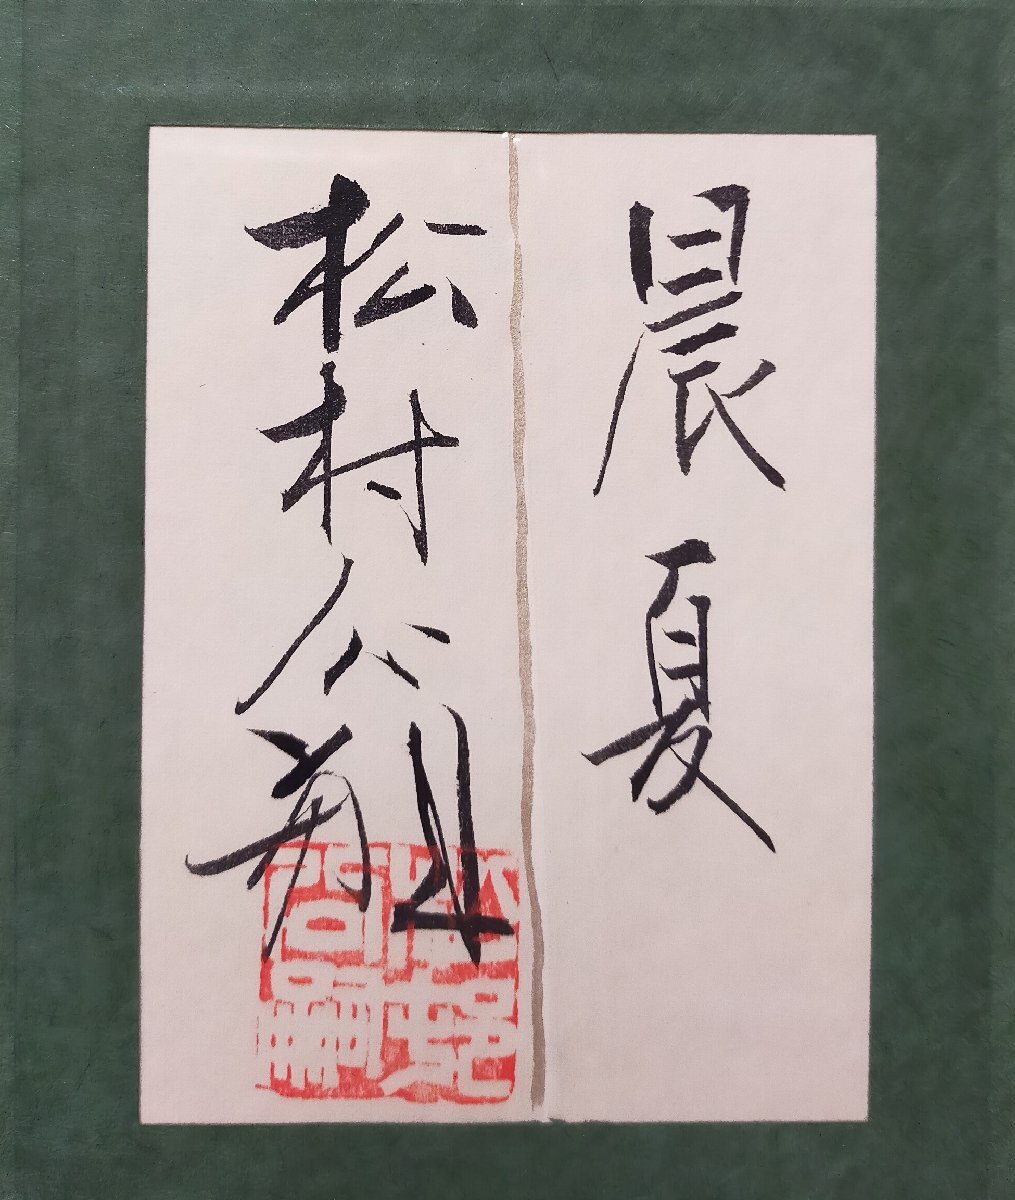 晨夏
松村公嗣